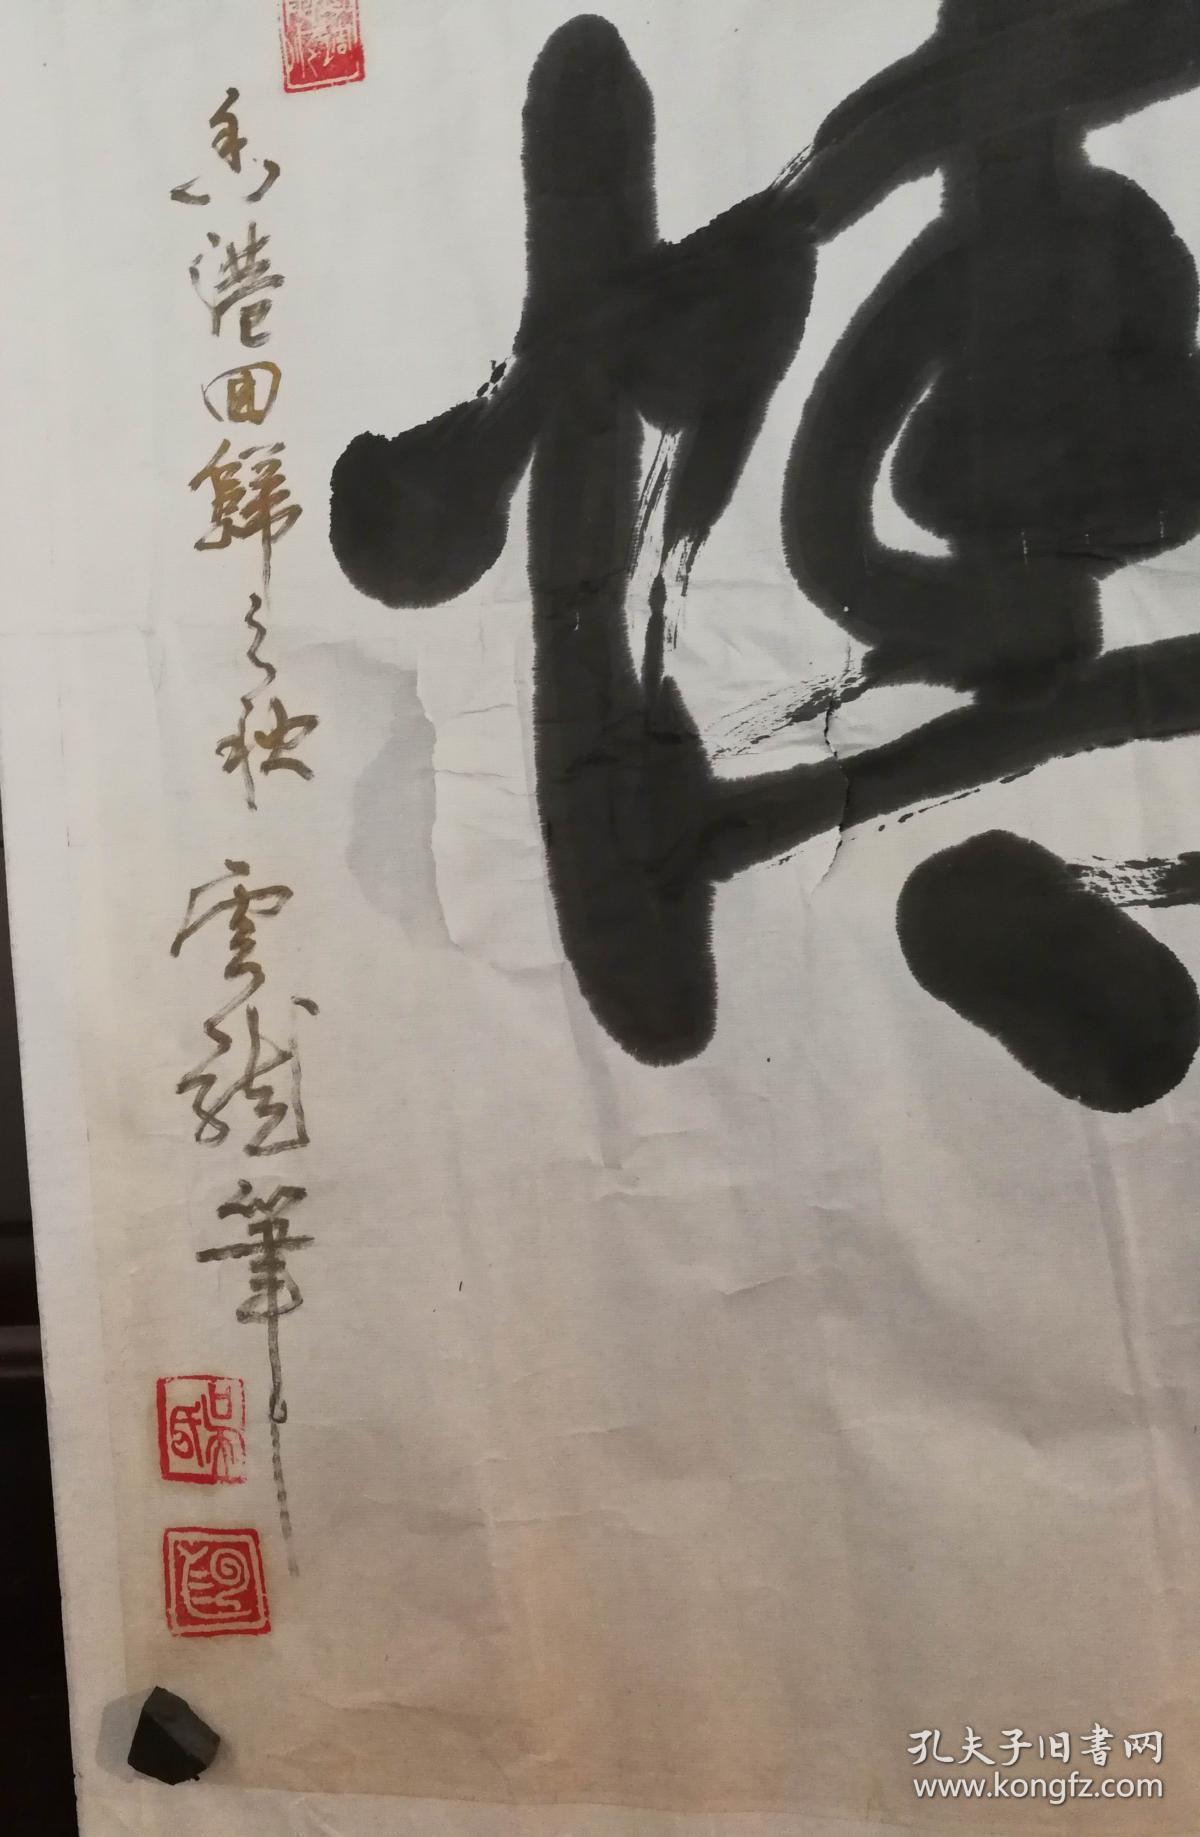 慎
香港回歸之秋 雲龍筆
孔夫子旧書网
www.kongfz.com